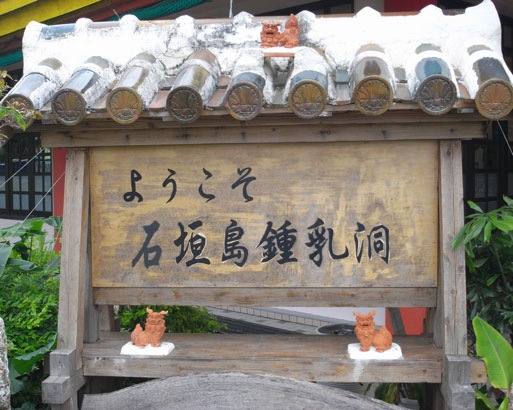 ようこそ
石垣島鍾乳洞